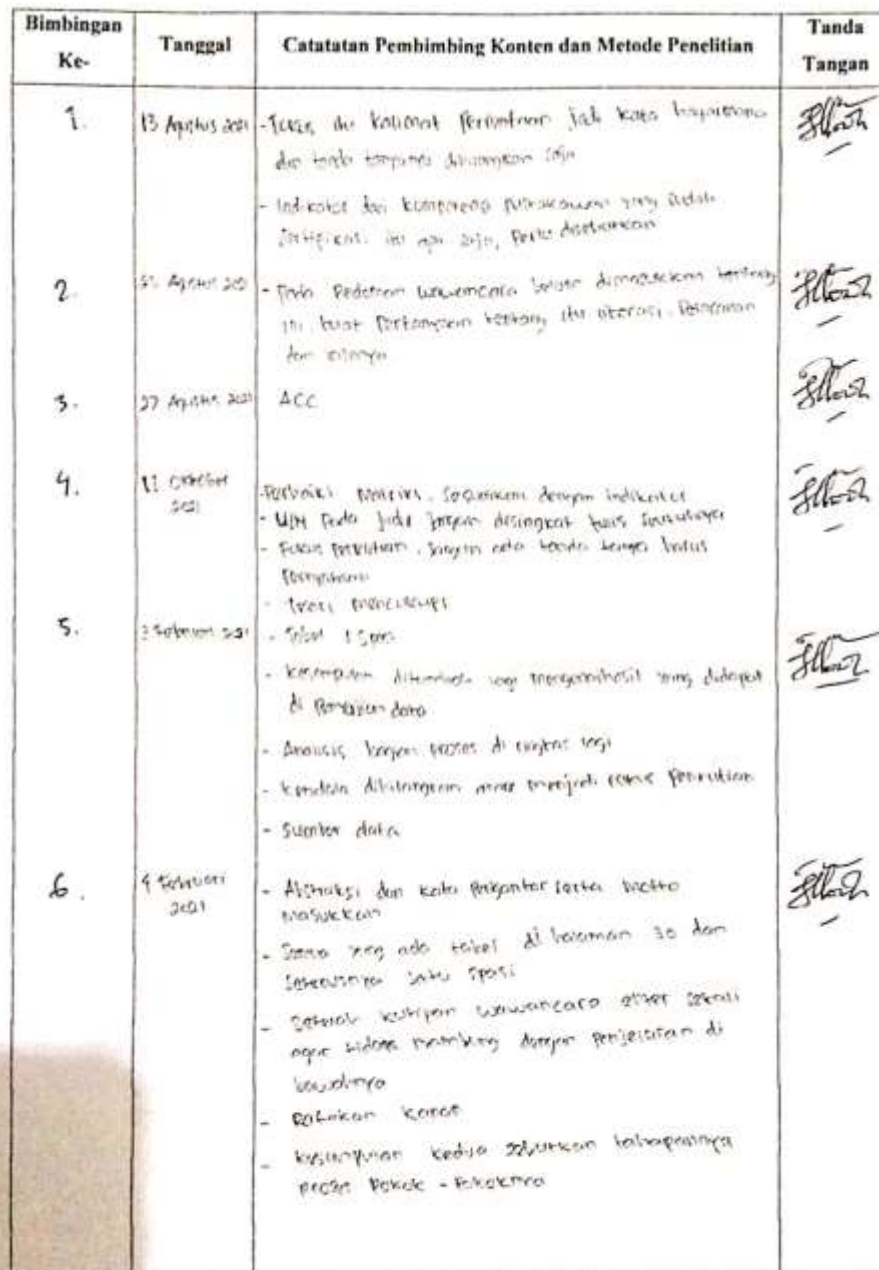 Bimbingan Ke-
Tanggal
Catatatan Pembimbing Konten dan Metode Penelitian
Tanda Tangan
1.
13 Agustus 2021
- Fokus itu kalimat pernyataan jadi kata bagaimana
dan tanda tanyanya dihilangkan saja
- Indikator dari kompetensi pustakawan yang sudah
sertifikasi itu apa saja, perlu disebutkan
2.
Agustus 2021
- Pada Pedoman wawancara belum dimasukkan tentang
ini buat pertanyaan tentang itu literasi,
dan
3.
27 Agustus 2021
ACC
4.
11 Oktober
2021
- Perbaiki matriks, sesuaikan dengan indikator
- pada judul jangan disingkat tulis
- Fokus penelitian, jangan ada tanda tanya harus
pernyataan
- Teori mencukupi
5.
Februari 2021
- Tabel 1 spasi
- Kesimpulan lagi hasil yang didapat
di data
- Analisis bagian proses di ringkas lagi
- Kendala dihilangkan menjadi fokus penelitian
- Sumber data
6.
Februari
2021
- Abstraksi dan kata pengantar serta motto
masukkan
- Semua yang ada tabel di halaman 30 dan
seterusnya satu spasi
- Setelah kutipan wawancara enter sekali
agar tidak dengan penjelasan di
bawahnya
- Ratakan kanan
- Kesimpulan kedua sebutkan tahapannya
proses pokok - pokoknya